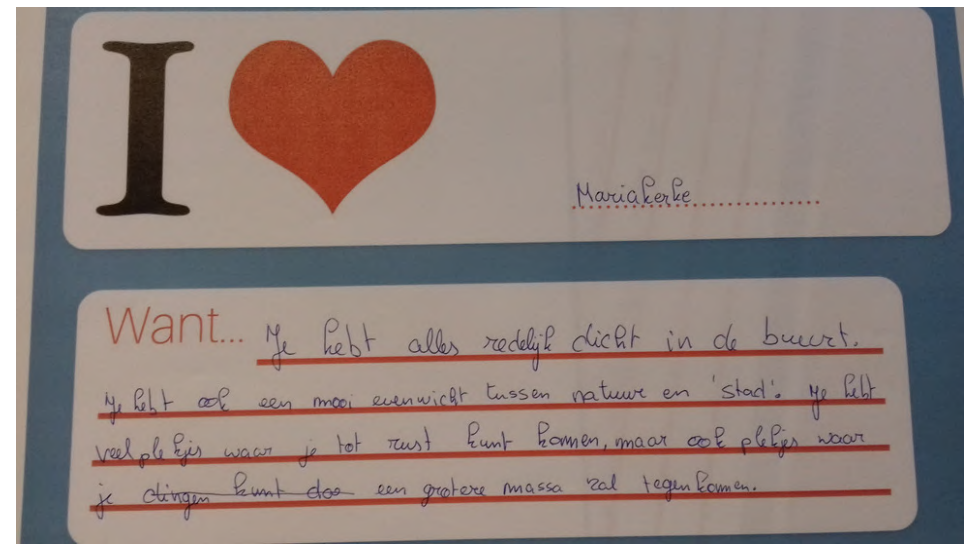 I ❤ Mariakerke
Want... Je hebt alles redelijk dicht in de buurt.
Je hebt ook een mooi evenwicht tussen natuur en 'stad'. Je hebt
veel plekjes waar je tot rust kunt komen, maar ook plekjes waar
je dingen kunt doe een grotere massa zal tegenkomen.